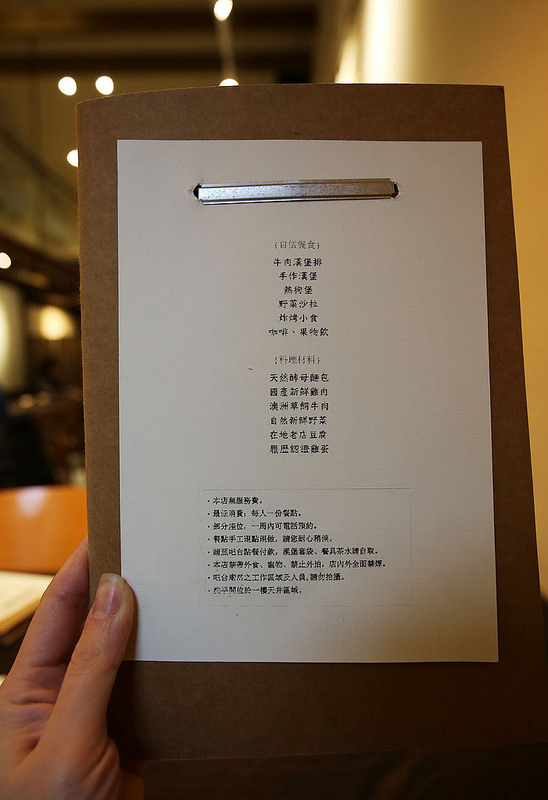 {自信餐食}
牛肉漢堡排
手作漢堡
熱狗堡
野菜沙拉
炸烤小食
咖啡、果物飲
{料理材料}
天然酵母麵包
國產新鮮雞肉
澳洲草飼牛肉
自然新鮮野菜
在地老店豆腐
履歷認證雞蛋
·本店無服務費。
·最低消費：每人一份餐點。
·部分座位，一周內可電話預約。
·餐點手工現點現做，請您耐心稍候。
·請至吧台點餐付款，漢堡套袋、餐具茶水請自取。
·本店禁帶外食、寵物、禁止外拍，店內外全面禁煙。
·吧台廚房之工作區域及人員，請勿拍攝。
·洗手間位於一樓天井區域。